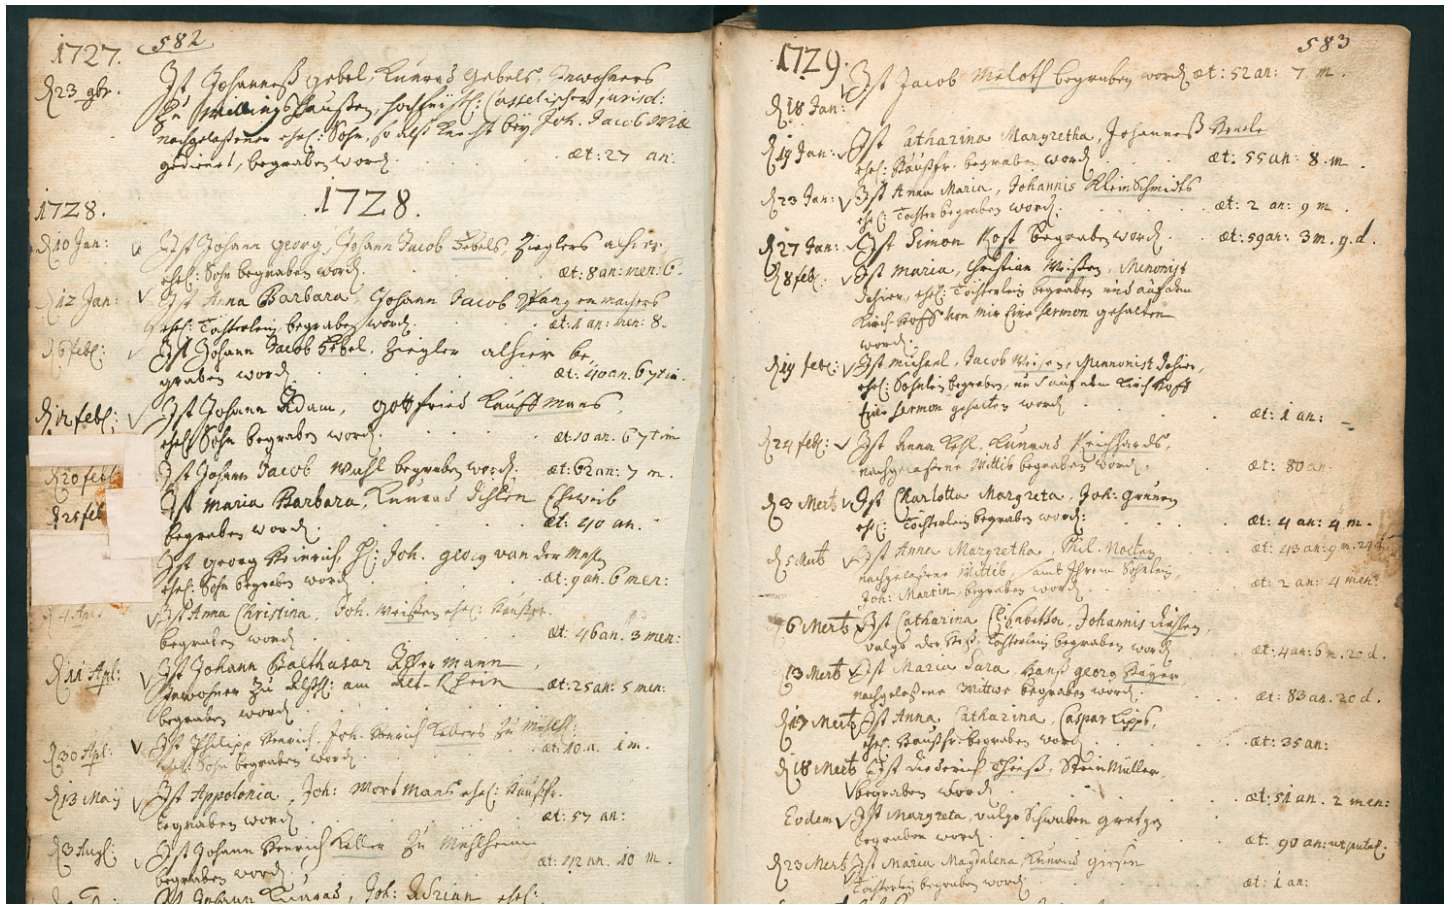 582
1727.
d 23 9br. Ist Johanneß Gebel, Cunrad Gebels, Inwohners
zu Willingshaußen, Casselischer jurisd:
nachgelaßener ehel: Sohn, so alß Knecht bey Joh. Jacob
gedienet, begraben word. æt: 27 an:
1728. 1728.
d 10 Jan: Ist Johann Georg, Johann Jacob Gebels, Zieglers alhier
ehel: Sohn begraben word. æt: 8 an: men: 6.
d 12 Jan: Ist Anna Barbara, Johann Jacob Stangenmachers
ehel: Töchterlein begraben word. æt: 1 an: men: 8.
d 6 febl: Ist Johann Jacob Gebel, Ziegler alhier be
graben word. æt: 40 an. 6
d 12 febl: Ist Johann Adam, Gottfried Kauffmans,
ehel: Sohn begraben word. æt: 10 an. 6
d 20 febl Ist Johann Jacob Wahl begraben word: æt: 62 an: 7 m.
d 25 feb Ist Maria Barbara, Cunrad Eheweib
begraben word. æt: 40 an.
Ist Georg Henrich, Joh. Georg van der
ehel: Sohn begraben word æt: 9 an. 6 men:
d 4 Ist Anna Christina, Joh. Weißen ehel: Haußfr.
begraben word. æt: 46 an. 3 men:
d 11 Apl: Ist Johann Balthasar Ackermann,
Inwohner zu am Alt-Rhein æt: 25 an: 5 men:
begraben word.
d 30 Apl: Ist Philipp Henrich, Joh. Henrich Kellers zu
ehel: Sohn begraben word. æt: 10 a. 1 m.
d 13 May Ist Appolonia, Joh: Morsmans ehel: Haußfr.
begraben word. æt: 57 an:
d 3 Augl: Ist Johann Henrich Keller zu Mühlheim
begraben word. æt: 42 an. 10 m.
Ist Johann Cunrad, Joh: Adrian ehel:
583
1729.
d 18 Jan: Ist Jacob Meloth begraben word æt: 52 an: 7. m.
d 19 Jan: Ist Catharina Margretha, Johanneß
ehel: Haußfr. begraben word æt: 55 an: 8. m.
d 23 Jan: Ist Anna Maria, Johannis Kleinschmidts
ehel: Tochter begraben word: æt: 2 an: 9 m.
d 27 Jan: Ist Simon Kost begraben word. æt: 59 an: 3 m. 9. d.
d 8 feb. Ist Maria, Christian Weißen, Menonist
dahier, ehel: Töchterlein begraben und auf dem
Kirch-Hoff von mir Eine Sermon gehalten
word:
d 19 febl: Ist Michael, Jacob Weisen, Mennonist dahier,
ehel: Söhnlein begraben, und auf dem Kirchhoff
Eine Sermon gehalten word æt: 1 an:
d 24 febl: Ist Anna Cunrad Reichhards,
nachgelaßene Wittib begraben word. æt: 80 an:
d 3 Mertz Ist Charlotta Margreta, Joh: Grünen
ehel: Töchterlein begraben word: æt: 4 an: 4 m.
d 5 Mertz Ist Anna Margretha, Phil. Nolten æt: 43 an: 9 m. 29 d
nachgelaßene Wittib, samt Ihrem Söhnlein,
Joh: Martin, begraben word. æt: 2 an: 4 men:
6 Mertz Ist Catharina Elisabetha, Johannis
vulgo Töchterlein begraben word æt: 4 an: 6 m. 20 d.
13 Mertz Ist Maria Sara, Hanß Georg Bayer
nachgelaßene Wittwe begraben word. æt: 83 an. 20 d.
d 17 Mertz Ist Anna Catharina, Caspar Lipps,
ehel: Haußfr: begraben word. æt: 35 an:
d 18 Mertz Ist Diederich Theiß, Steinmüller,
begraben word. æt: 51 an. 2 men:
Eodem Ist Margreta, vulgo Schwaben Gretgen
begraben word. æt: 90 an: ut putat.
d 23 Mertz Ist Maria Magdalena, Cunrad Giesen
Töchterlein begraben word. æt: 1 an: